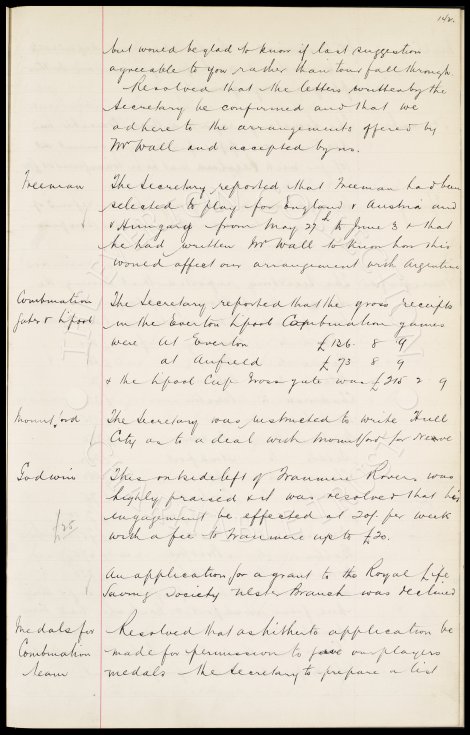 142.
but would be glad to know if last suggestion
agreeable to you rather than tour fall through.
Resolved that the letters written by the
Secretary be confirmed and that we
adhere to the arrangements offered by
Mr Wall and accepted by us.
Freeman
The Secretary reported that Freeman had been
selected to play for England v Austria and
v Hungary from May 27th to June 3 & that
he had written Mr Wall to know how this
would affect our arrangement with Argentine
Combination
gates v L'pool
The Secretary reported that the gross receipts
in the Everton L'pool Combination games
were at Everton £136. 8 9
at Anfield £73 8 9
& the L'pool Cup Gross gate was £215 2 9
Mountford
The Secretary was instructed to write Hull
City as to a deal with Mountford for Neave
Godwin
This outside left of Tranmere Rovers was
highly praised & it was resolved that his
engagement be effected at 20/- per week
with a fee to Tranmere up to £20.
£25
An application for a grant to the Royal Life
Saving Society Ulster Branch was declined
Medals for
Combination
team
Resolved that as hitherto application be
made for permission to give our players
medals the Secretary to prepare a list